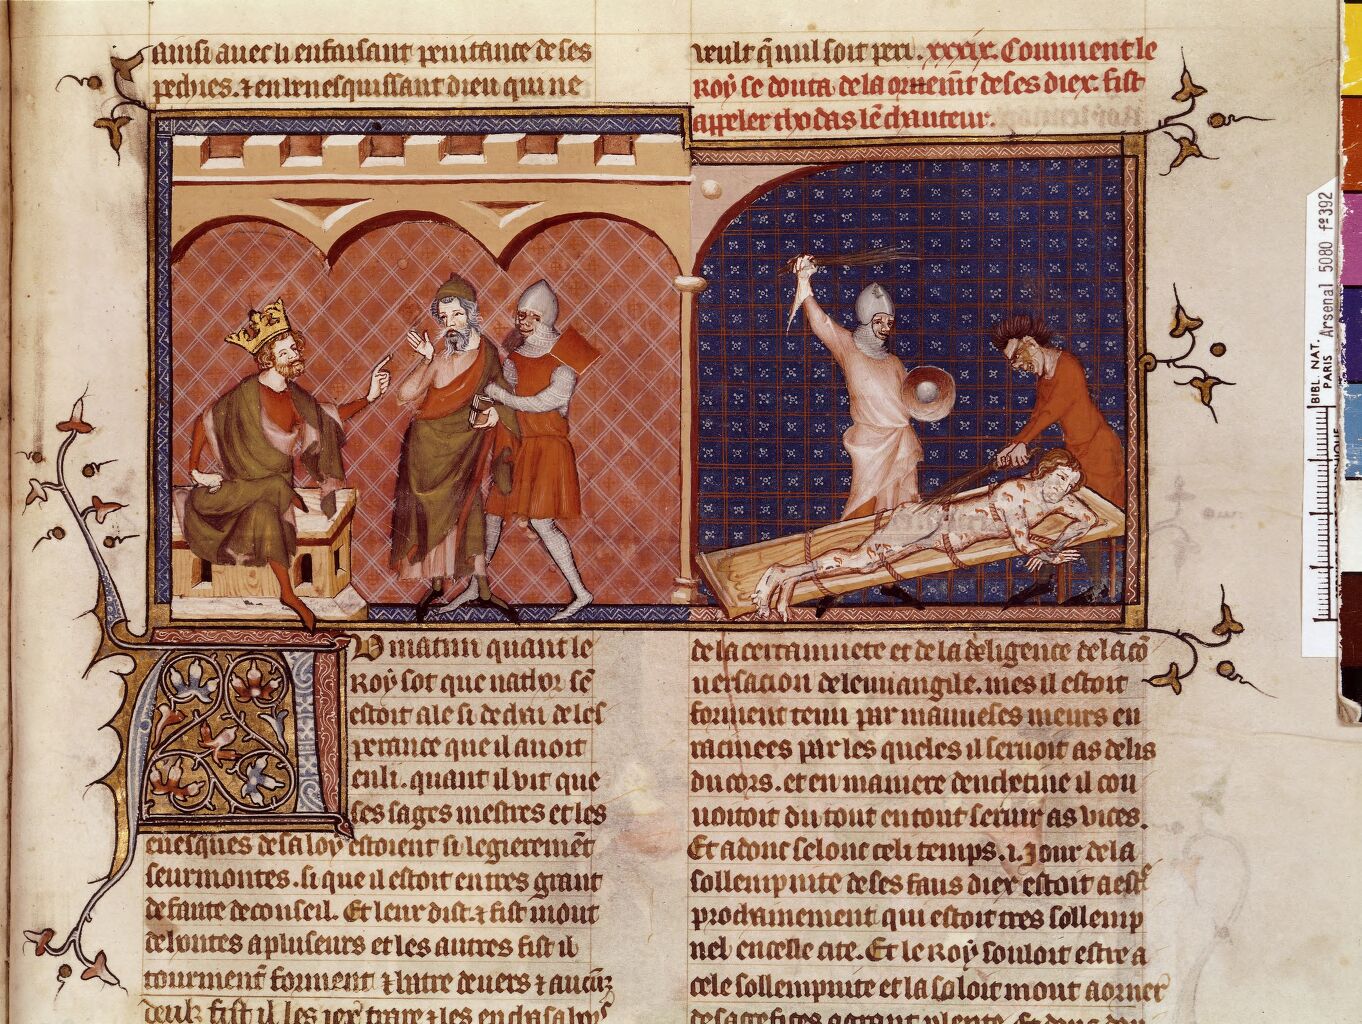 ainsi auec li en faisant penitance de ses
pechies. ⁊ en renesquissant dieu qui ne
veult q̃ nul soit peri. xxxix. Comment le
Roy se douta de la de ses diex. fist
appeler thodas lẽchanteur.
Au matin quant le
Roy sot que nachor sẽ
estoit ale si de chai de les
perance que il auoit
en li. quant il vit que
ses sages mestres et les
euesques de sa loy estoient si legieremẽt
seurmontes. si que il estoit en tres grant
defaute de conseil. Et leur dist. ⁊ fist mout
de hontes a pluseurs et les autres fist il
tourmentr̃ forment ⁊ batre de uers ⁊ aucũs
deulz fist il les iex traire ⁊ les en chasa hors
de la certainnete et de la deligence de la cõ
uersacion de leuuangile. mes il estoit
forment tenu par mauueses meurs en
racinees par les queles il seruoit as delis
du cors. et en maniere dencletiue il cou
uoitoit du tout en tout seruir as vices.
Et adonc selonc celi temps .i. Jour de la
sollempnite de ses faus diex estoit a estre
prochainement qui estoit tres sollemp
nel en celle cite. Et le Roy souloit estre a
cele sollempnite et la soloit mout aorner
de sacrefices a grant plente. Et donc
BIBL. NAT.
PARIS
Arsenal 5080 fº392